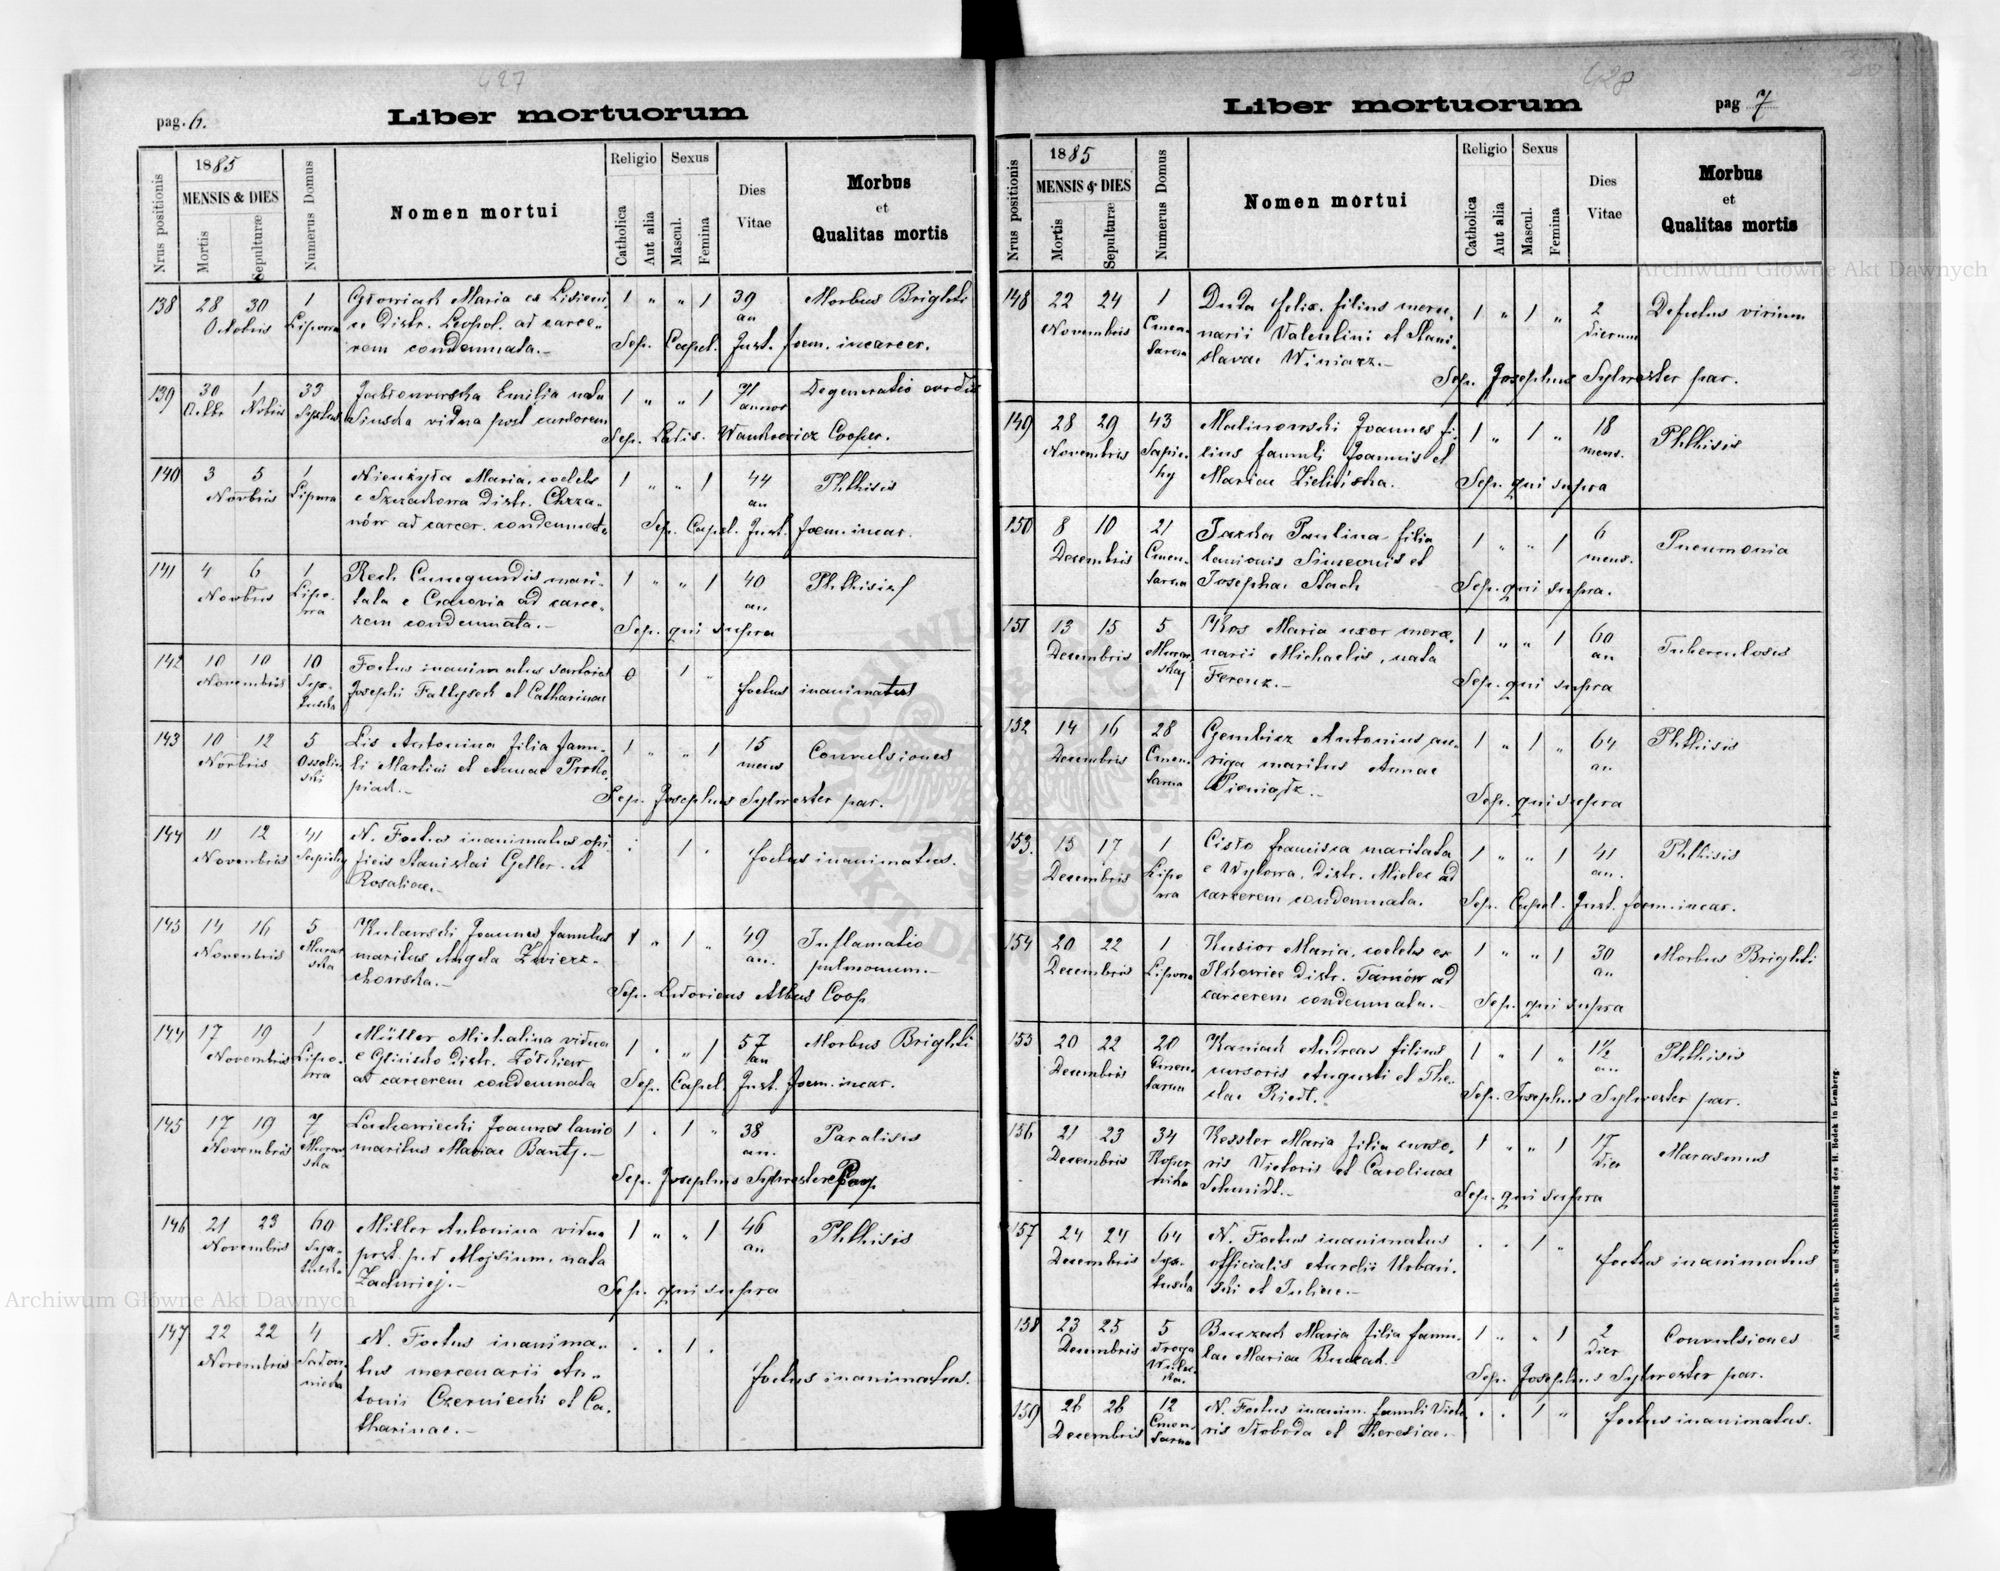 427
pag. 6.
Liber mortuorum
Nrus positionis
1885
MENSIS & DIES
Mortis
Sepulturæ
Numerus Domus
Nomen mortui
Religio
Catholica
Aut alia
Sexus
Mascul.
Femina
Dies
Vitae
Morbus
et
Qualitas mortis
138 28 30 1 Głowiak Maria ex Lisieni- 1 " " 1 39 Morbus Brighti
Octobris Lipowa ce Distr. Leopol. ad carce- an
rem condemnata.- Sep. Capel. Inst. foem. incarcer.
139 30 1 33 Jabłonowska Emilia nata 1 " " 1 71 Degeneratio cordis
Octbr Nobris vidua post cursorem annor
Sep. Ladis. Wankowicz Cooper.
140 3 5 1 Maria, coelebs 1 " " 1 44 Phthisis
Novbris Lipowa e Szczakowa Distr. Chrza- an
nów ad carcer. condemnata Sep. Capel. Inst. foem. incar.
141 4 6 1 Rech Cunegundis mari- 1 " " 1 40 Phthisis
Novbris Lipo- tata e Cracovia ad carce- an.
wa rem condemnata.- Sep. qui supra
142 10 10 10 Foetus inanimatus sartoris 0 1 "
Novembris Syx- Josephi et Catharinae foetus inanimatus
tuska
143 10 12 5 Lis Antonina filia famu- 1 " " 1 15 Convulsiones
Novbris Ossoliń- li Martini et Annae Proko- mens
ski piak.- Sep. Josephus Sylwester par.
144 11 12 41 N. Foetus inanimatus opi- 1
Novembris Sapiehy ficis Stanislai Geller et foetus inanimatus.
Rosaliae.-
143 14 16 5 Kulawski Joannes famulus 1 " 1 " 49 Inflamatio
Novembris Murar maritus Angela Zwierz- an. pulmonum.-
ska chowska.- Sep. Ludovicus Albus Coop
144 17 19 1 Müller Michalina vidua 1 " " 1 57 Morbus Brighti
Novembris Lipo- e Glinsko Distr. Żółkiew an
wa ad carcerem condemnata Sep. Capel. Inst. foem. incar.
145 17 19 7 Lachowiecki Joannes lanio 1 . 1 " 38 Paralisis
Novembris Murar- maritus Mariae Bantz.- an.
ska Sep. Josephus Sylwester Par.
146 21 23 60 Miller Antonina vidua 1 " " 1 46 Phthisis
Novembris Syx- post p. d Alojsium, nata an
tuska Sep. qui supra
147 22 22 4 N. Foetus inanima- . . 1 .
Novembris Sadow- tus mercenarii An-
nicka tonii Czerniecki et Ca- foetus inanimatus.
tharinae.-
428
Liber mortuorum
pag 7
Nrus positionis
1885
MENSIS & DIES
Mortis
Sepulturæ
Numerus Domus
Nomen mortui
Religio
Catholica
Aut alia
Sexus
Mascul.
Femina
Dies
Vitae
Morbus
et
Qualitas mortis
148 22 24 1 Duda Felix filius merce- 1 " 1 " 2 Defectus virium
Novembris Cmen- narii Valentini et Stani- dierum
tarna slavae Winiarz.-
Sep. Josephus Sylwester par.
149 28 29 43 Malinowski Joannes fi- 1 " 1 " 18 Phthisis
Novembris Sapie- lius famuli Joannis et mens.
hy Mariae Zielińska. Sep. qui supra
150 8 10 21 Paulina filia 1 " " 1 6 Pneumonia
Decembris Cmen- lanionis Simeonis et mens.
tarna Josepha Stach Sep. qui supra.
151 13 15 5 Kos Maria uxor merce- 1 " " 1 60 Tuberculosis
Decembris Murar- narii Michaelis, nata an
skaj Ferenz.- Sep. qui supra
152 14 16 28 Czembicz Antonius au- 1 " 1 " 64 Phthisis
Decembris Cmen- riga maritus Annae an
tarna Pieniądz.- Sep. qui supra
153. 15 17 1 Cisło Francisca maritata 1 " " 1 41 Phthisis
Decembris Lipo e Wylowa, Distr. Mielec ad an.
wa carcerem condemnata. Sep. Capel. Inst. foem. incar.
154 20 22 1 Kusior Maria, coelebs ex 1 " " 1 30 Morbus Brighti
Decembris Lipowa Ilkowice Distr. Tarnów ad an
carcerem condemnata.- Sep. qui supra
153 20 22 20 Kaniak Andreas filius 1 " 1 " 1½ Phthisis
Decembris Cmen- cursoris Augusti et The- an.
tarna clae Riedl.- Sep. Josephus Sylwester par.
156 21 23 34 Kessler Maria filia curso- 1 " " 1 17 Marasmus
Decembris Koper ris Victoris et Carolinae dier
nika Schmidt.- Sep. qui supra
157 24 24 64 N. Foetus inanimatus . . 1 "
Decembris Syx- officialis Aurelii Urbań- foetus inanimatus
tuska ski et Juliae.-
158 23 25 5 Buczak Maria filia famu- 1 " " 1 2 Convulsiones
Decembris droga lae Mariae Buczak.- dier
Wulec-
ka. Sep. Josephus Sylwester par.
159 26 26 12 N. Foetus inanim. famuli Victo- . . 1 " foetus inanimatus.
Decembris Cmen- ris Słoboda et Theresiae.-
tarna
Aus der Buch- und Schreibhandlung des H. Bodek in Lemberg.
Archiwum Główne Akt Dawnych
Archiwum Główne Akt Dawnych